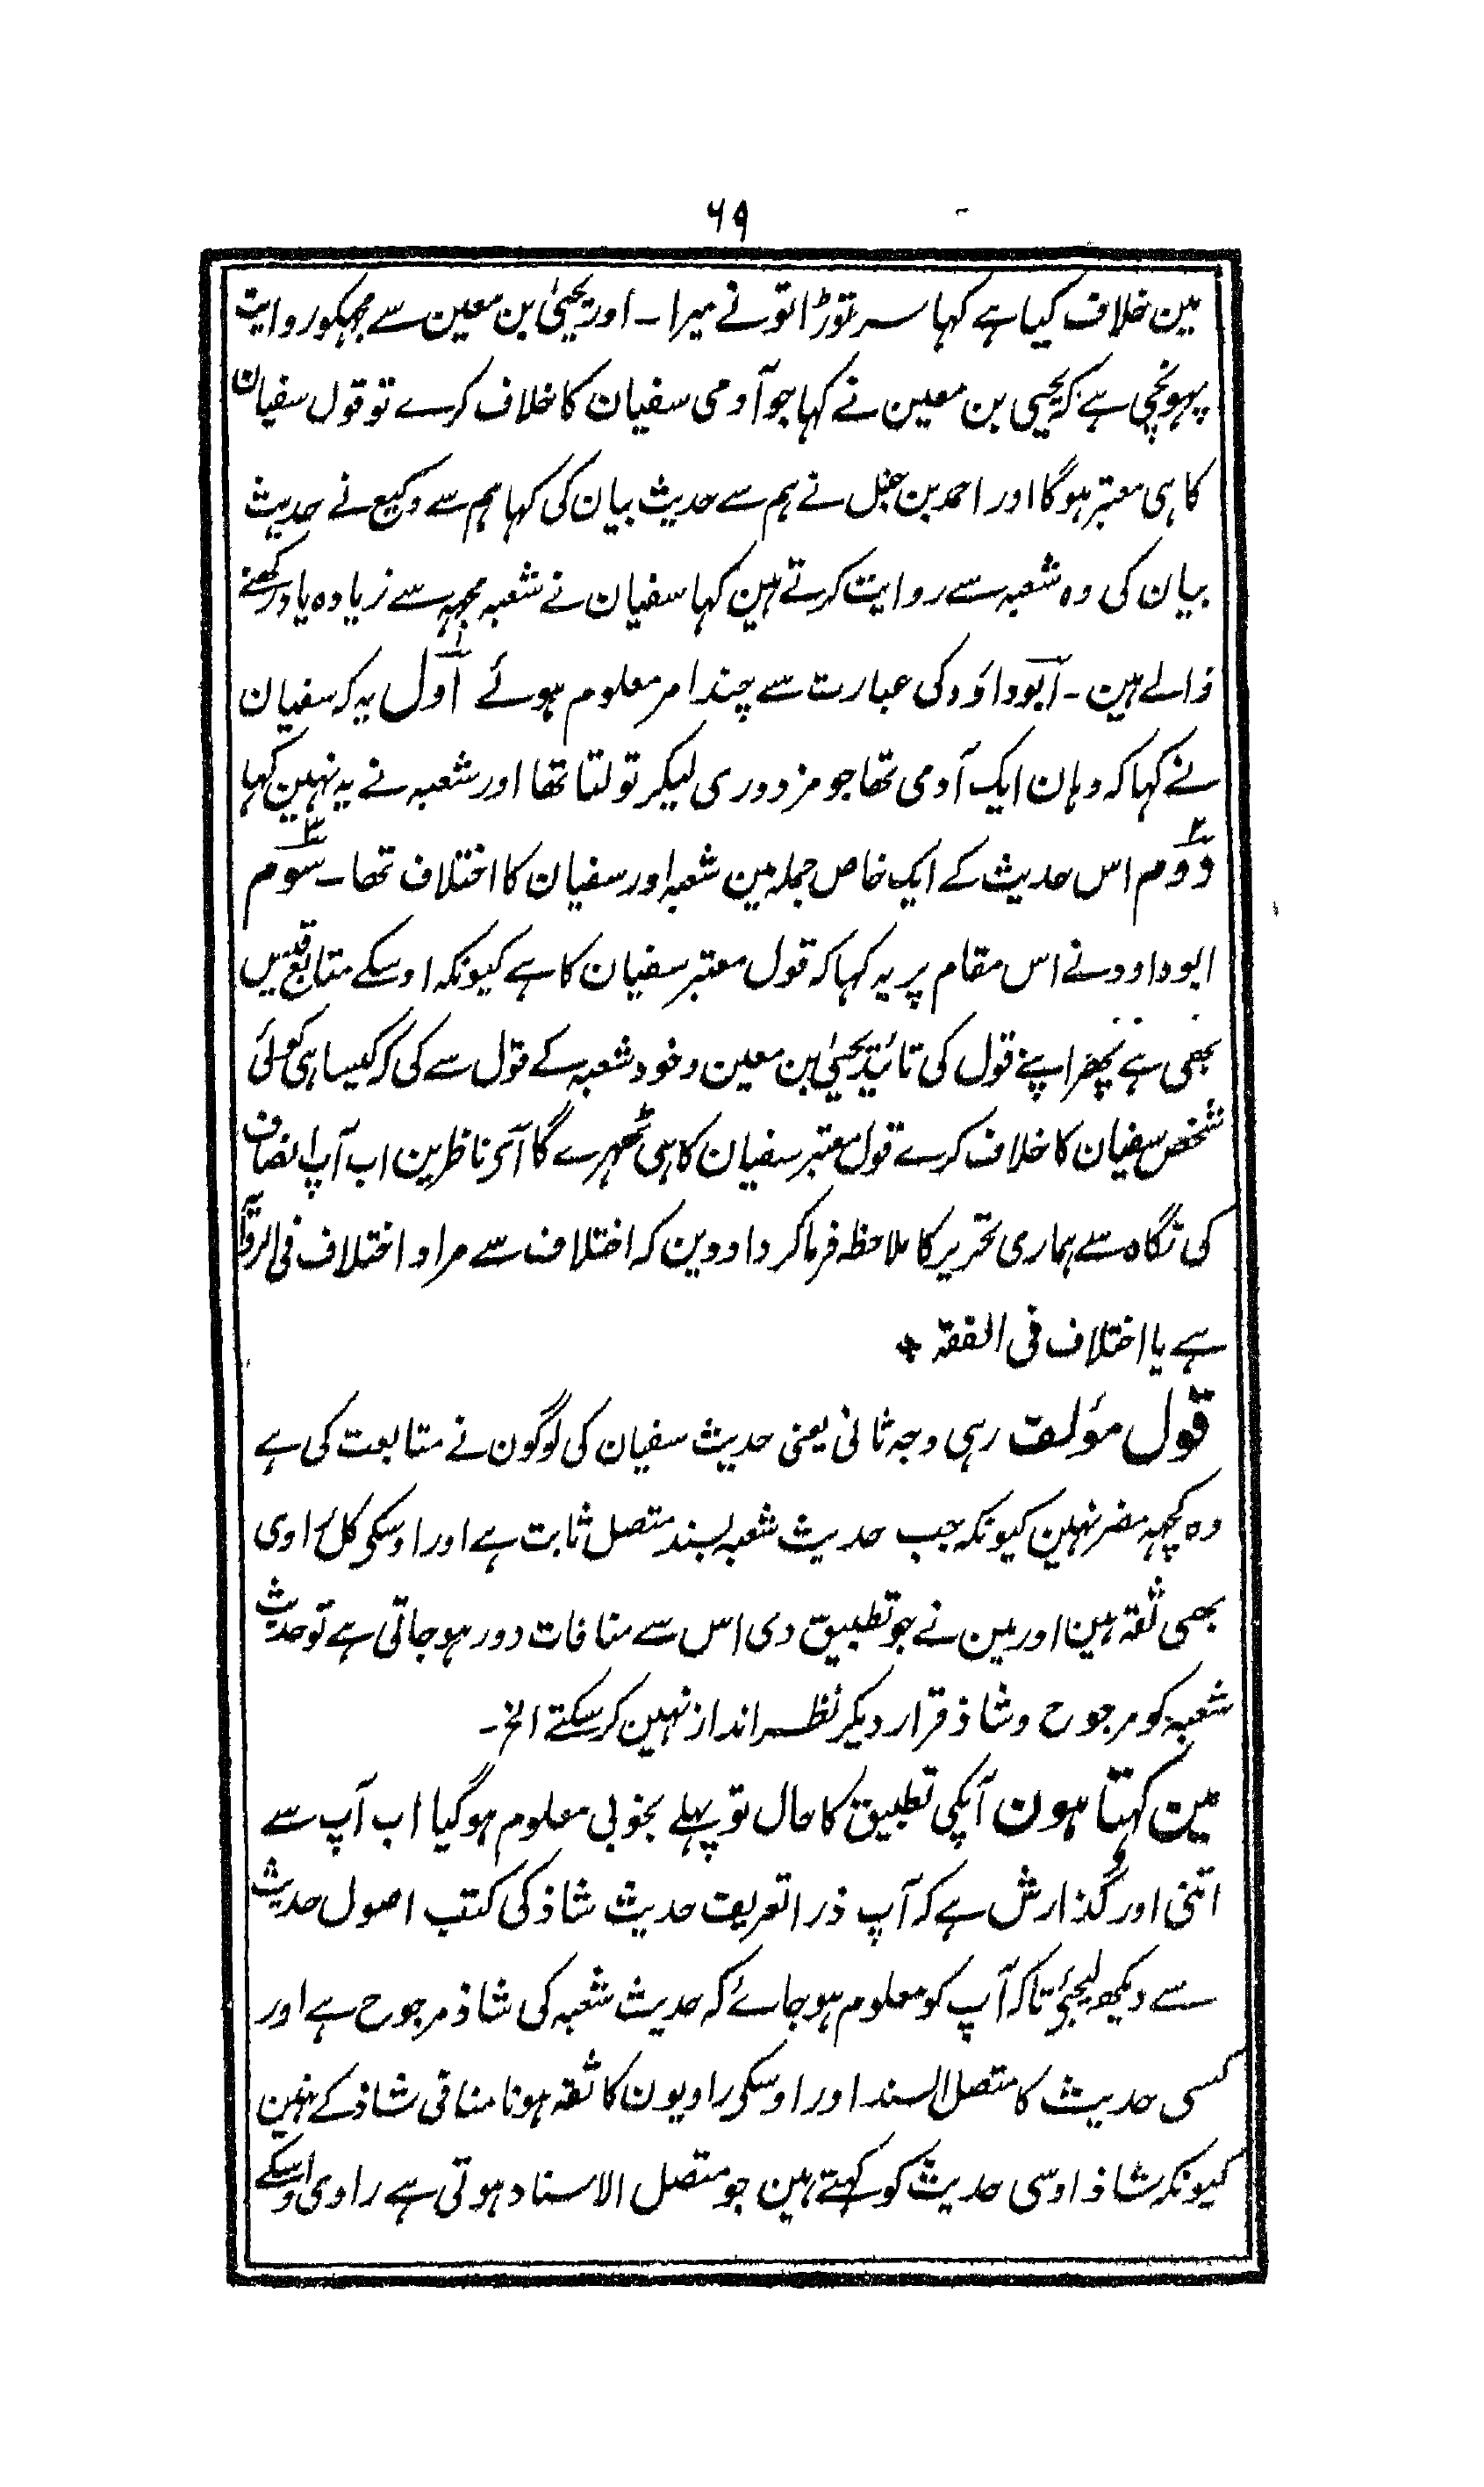 ۶۹
مین خلاف کیا ہے کہا سر توڑا تو نے میرا۔ اور یحییٰ بن معین سے مجہکو روایت
پہونچی ہے کہ یحیی بن معین نے کہا جو آدمی سفیان کا خلاف کرے تو قول سفیان
کا ہی معتبر ہوگا اور احمد بن حنبل نے ہم سے حدیث بیان کی کہا ہم سے وکیع نے حدیث
بیان کی وہ شعبہ سے روایت کرتے ہین کہا سفیان نے شعبہ مجہہ سے زیادہ یاد رکھنے
والے ہین۔ ابوداؤد کی عبارت سے چند امر معلوم ہوئے اول یہ کہ سفیان
نے کہا کہ وہان ایک آدمی تھا جو مزدوری لیکر تولتا تھا اور شعبہ نے یہ نہین کہا
دوم اس حدیث کے ایک خاص جملہ مین شعبہ اور سفیان کا اختلاف تھا۔ سوم
ابوداود نے اس مقام پر یہ کہا کہ قول معتبر سفیان کا ہے کیونکہ اوسکے متابع قیس
بھی ہے پھر اپنے قول کی تائید یحییٰ بن معین و خود شعبہ کے قول سے کی کہ کیسا ہی کوئی
شخص سفیان کا خلاف کرے قول معتبر سفیان کا ہی ٹھہرے گا آی ناظرین اب آپ انصاف
کی نگاہ سے ہماری تحریر کا ملاحظہ فرماکر داد دین کہ اختلاف سے مراد اختلاف فی الروایۃ
ہے یا اختلاف فی الفقہ *
قول مؤلف رہی وجہ ثانی یعنی حدیث سفیان کی لوگون نے متابعت کی ہے
وہ کچہہ مضر نہین کیونکہ جب حدیث شعبہ بسند متصل ثابت ہے اور اوسکی کل راوی
بھی ثقہ ہین اور مین نے جو تطبیق دی اس سے منافات دور ہو جاتی ہے تو حدیث
شعبہ کو مرجوح و شاذ قرار دیکر نظر انداز نہین کر سکتے الخ۔
مین کہتا ہون آپکی تطبیق کا حال تو پہلے بخوبی معلوم ہو گیا اب آپ سے
اتنی اور گذارش ہے کہ آپ ذرا تعریف حدیث شاذ کی کتب اصول حدیث
سے دیکھ لیجئی تاکہ آپ کو معلوم ہو جائے کہ حدیث شعبہ کی شاذ مرجوح ہے اور
کسی حدیث کا متصل السند اور اوسکی راویون کا ثقہ ہونا منافی شاذ کے نہین
کیونکہ شاذ اوسی حدیث کو کہتے ہین جو متصل الاسناد ہوتی ہے راوی اوسکے